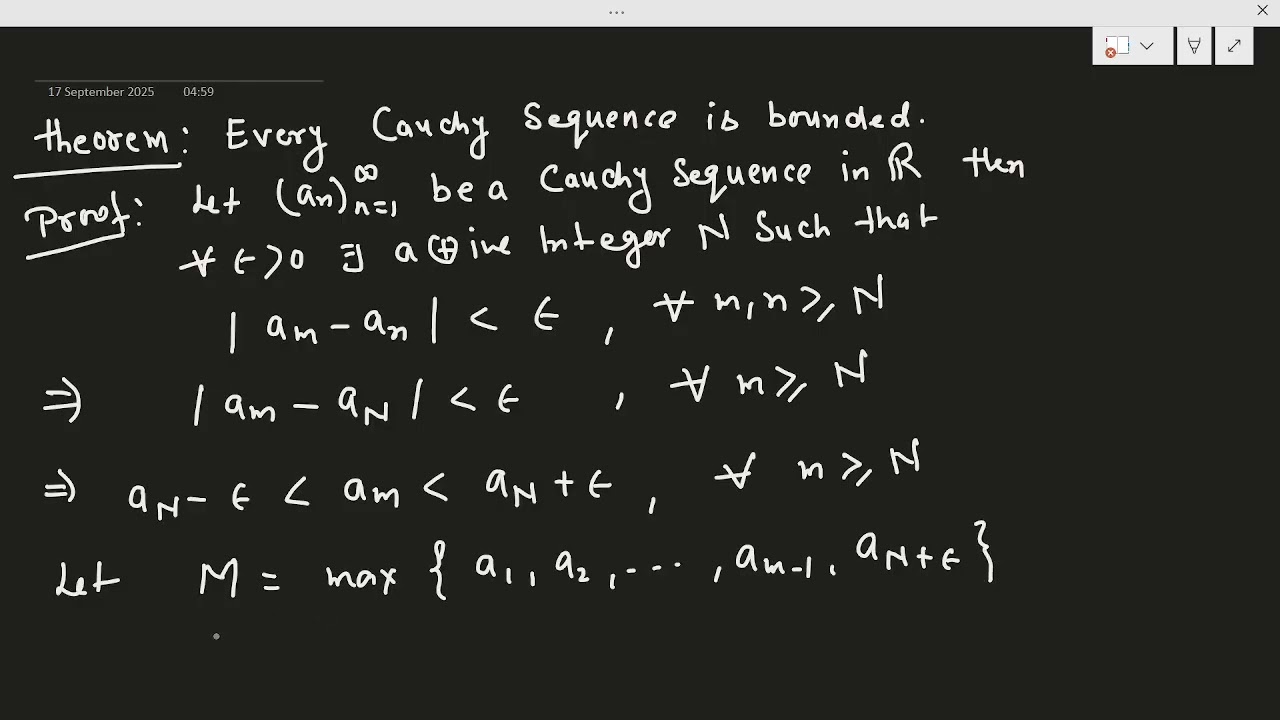 17 September 2025 04:59
Theorem: Every Cauchy Sequence is bounded.
Proof: Let (aₙ)ₙ₌₁^∞ be a Cauchy Sequence in ℝ then
∀ ϵ > 0 ∃ a ⊕ive Integer N Such that
| aₘ − aₙ | < ϵ , ∀ m, n ⩾ N
⇒ | aₘ − a_N | < ϵ , ∀ m ⩾ N
⇒ a_N − ϵ < aₘ < a_N + ϵ , ∀ m ⩾ N
Let M = max { a₁, a₂, ..., aₘ₋₁, a_N + ϵ }